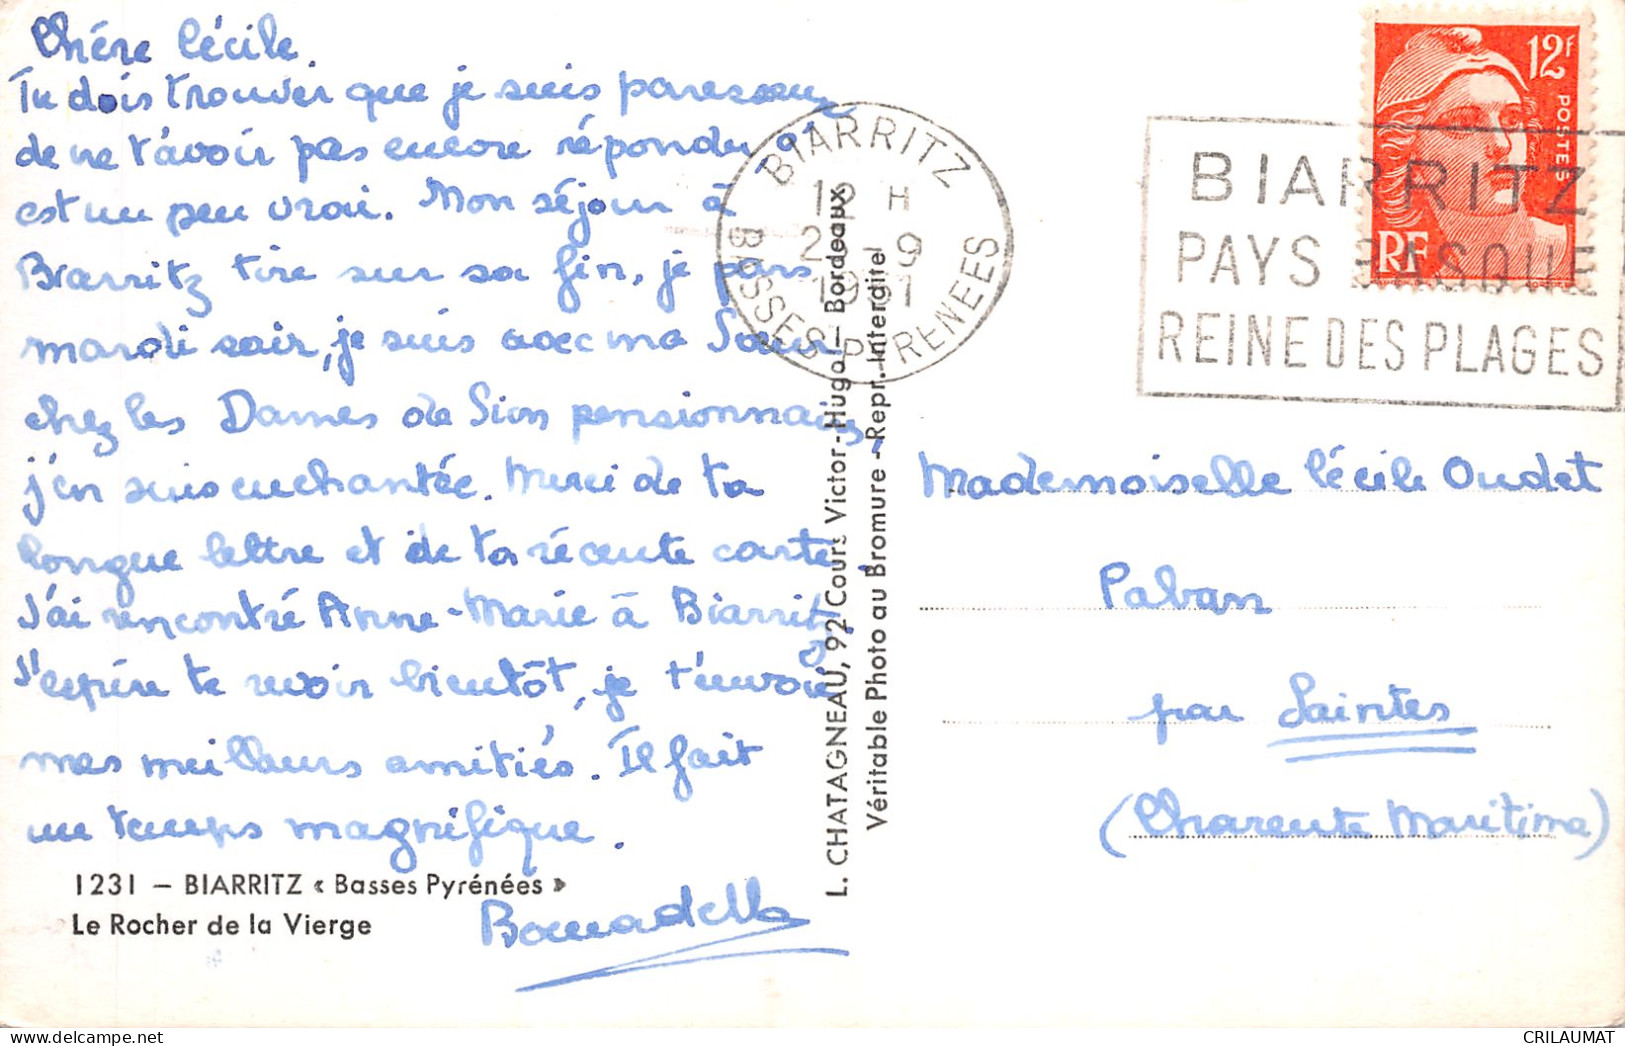 Chère Cécile.
Tu dois trouver que je suis paresseuse
de ne t'avoir pas encore répondu
est un peu vrai. Mon séjour à
Biarritz tire sur sa fin, je pars
mardi soir, je suis avec ma Sœur
chez les Dames de Sion pensionnaires,
j'en suis enchantée. Merci de ta
longue lettre et de ta récente carte.
J'ai rencontré Anne-Marie à Biarritz.
J'espère te revoir bientôt, je t'envoie
mes meilleurs amitiés. Il fait
un temps magnifique.
Bernadette
1231 – BIARRITZ « Basses Pyrénées »
Le Rocher de la Vierge
L. CHATAGNEAU, 92 Cours Victor-Hugo – Bordeaux
Véritable Photo au Bromure - Repr. Interdite
BIARRITZ
12 H
9
1951
BASSES-PYRENEES
BIARRITZ
PAYS BASQUE
REINE DES PLAGES
12F
POSTES
RF
Mademoiselle Cécile Oudet
Paban
par Saintes
(Charente Maritime)
CRILAUMAT